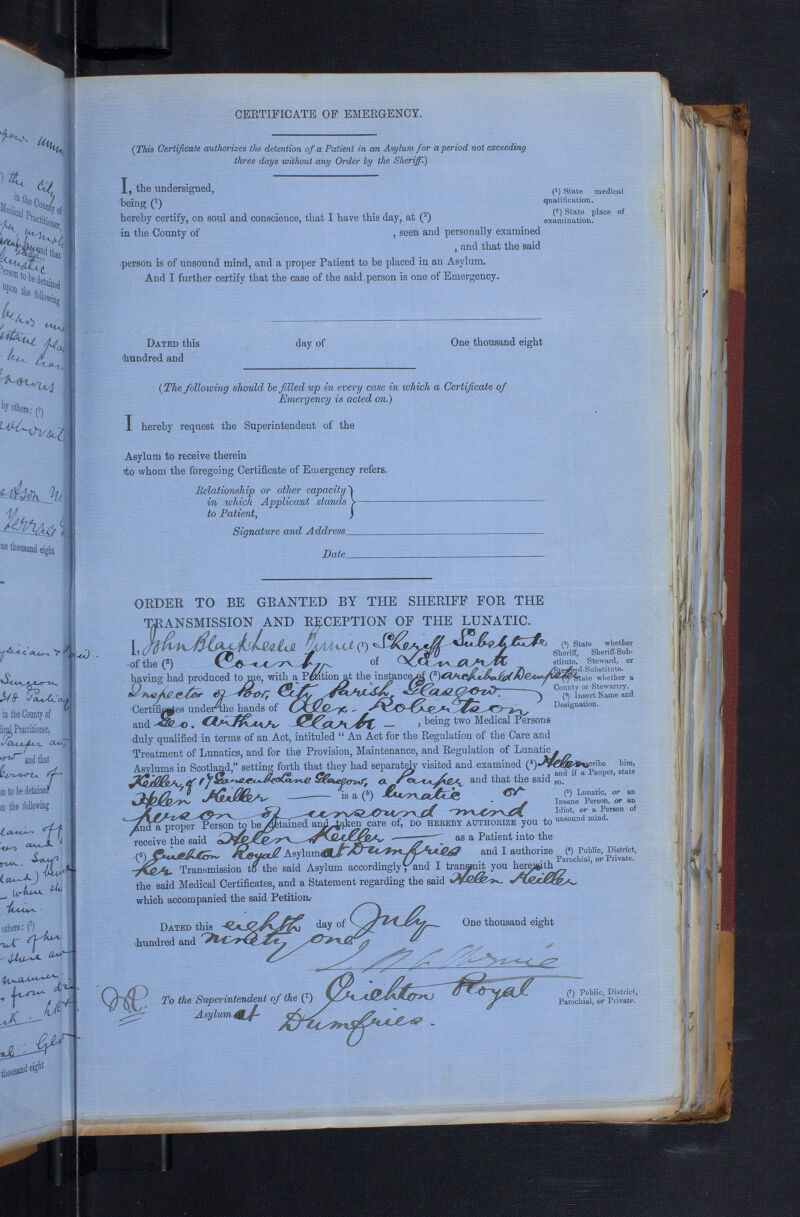 CERTIFICATE OF EMERGENCY.
(This Certificate authorizes the detention of a Patient in an Asylum for a period not exceeding
three days without any Order by the Sheriff.)
I, the undersigned,
being (¹)
hereby certify, on soul and conscience, that I have this day, at (²)
in the County of , seen and personally examined
, and that the said
person is of unsound mind, and a proper Patient to be placed in an Asylum.
And I further certify that the case of the said person is one of Emergency.
(¹) State medical
qualification.
(²) State place of
examination.
DATED this day of One thousand eight
hundred and
(The following should be filled up in every case in which a Certificate of
Emergency is acted on.)
I hereby request the Superintendent of the
Asylum to receive therein
to whom the foregoing Certificate of Emergency refers.
Relationship or other capacity
in which Applicant stands
to Patient,
Signature and Address
Date
ORDER TO BE GRANTED BY THE SHERIFF FOR THE
TRANSMISSION AND RECEPTION OF THE LUNATIC.
I, John Black Leslie Birnie (¹) Sheriff Substitute
of the (²) County of Lanark
having had produced to me, with a Petition at the instance of (³) Archibald Dempster
Inspector of Poor, City Parish, Glasgow.
Certificates under the hands of Alex. Robertson
and Geo. Arthur Clark , being two Medical Persons
duly qualified in terms of an Act, intituled "An Act for the Regulation of the Care and
Treatment of Lunatics, and for the Provision, Maintenance, and Regulation of Lunatic
Asylums in Scotland," setting forth that they had separately visited and examined (⁴) Helen
Keiller, of 17 Lane Glasgow, a Pauper and that the said
Helen Keiller is a (⁵) lunatic or
person of unsound mind
and a proper Person to be detained and taken care of, DO HEREBY AUTHORIZE you to
receive the said Helen Keiller as a Patient into the
(⁶) Crichton Royal Asylum at Dumfries and I authorize
her Transmission to the said Asylum accordingly; and I transmit you herewith
the said Medical Certificates, and a Statement regarding the said Helen Keiller
which accompanied the said Petition.
(¹) State whether
Sheriff, Sheriff-Sub-
stitute, Steward, or
Steward-Substitute.
(²) State whether a
County or Stewartry.
(³) Insert Name and
Designation.
(⁴) Describe him,
and if a Pauper, state
so.
(⁵) Lunatic, or an
Insane Person, or an
Idiot, or a Person of
unsound mind.
(⁶) Public, District,
Parochial, or Private.
DATED this eighth day of July One thousand eight
hundred and ninety one
To the Superintendent of the (⁷) Crichton Royal
Asylum at Dumfries.
(⁷) Public, District,
Parochial, or Private.